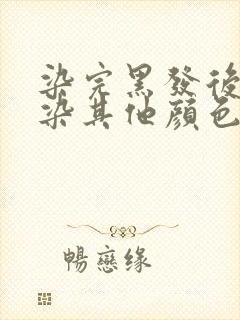 染完黑發後
染其他顏色
暢戀緣